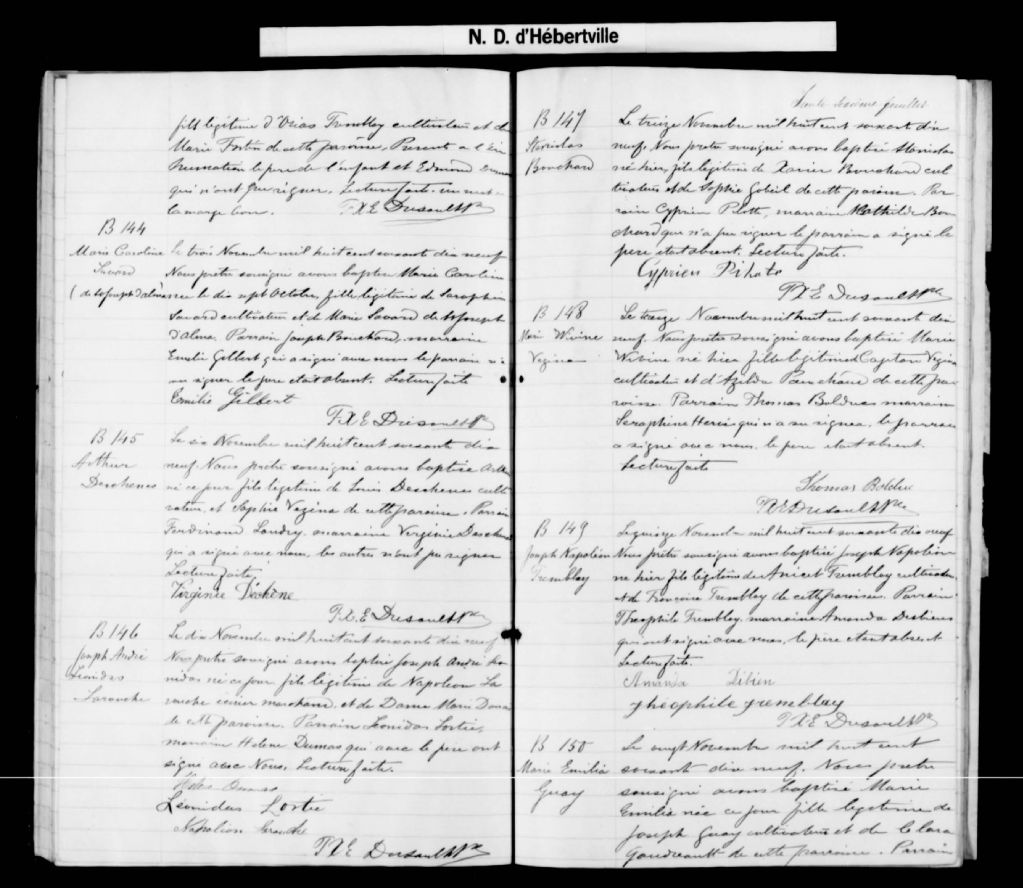 N. D. d'Hébertville
fils légitime d'Urias Tremblay cultivateur et de
Marie Fortin de cette paroisse, Présent à l'in
humation le père de l'enfant et Edmond
qui n'ont pu signer. Lecture faite. un mot
la marge bon. F.X.E Dusault Ptre
B 144
Marie Caroline
Savard
(de St Joseph d'alma
le trois Novembre mil huit cent soixante dix neuf
Nous prêtre soussigné avons baptisé Marie Caroline
née le dix sept Octobre, fille légitime de Séraphin
Savard cultivateur et de Marie Savard de St Joseph
d'alma. Parrain Joseph Bouchard, marraine
Emélie Gilbert qui a signé avec nous le parrain n'a
su signer le père était absent. Lecture faite
Emilie Gilbert
F.X.E Dusault Ptre
B 145
Arthur
Deschenes
Le six Novembre mil huit cent soixante dix
neuf. Nous prêtre soussigné avons baptisé Arthur
né ce jour fils légitime de Louis Deschenes culti
vateur, et Sophie Vézina de cette paroisse. Parrain
Ferdinand Landry, marraine Virginie Deschenes
qui a signé avec nous, les autres n'ont pu signer
Lecture faite,
Virginie Dechêne
F.X.E Dusault Ptre
B 146
Joseph André
Léonidas
Larouche
Le dix Novembre mil huit cent soixante dix neuf
Nous prêtre soussigné avons baptisé Joseph André Léo
nidas né ce jour fils légitime de Napoléon La
rouche écuier marchand, et de Dame Marie
de cette paroisse. Parrain Léonidas Lortie,
marraine Hélène Dumas qui avec le père ont
signé avec Nous. Lecture faite.
Hélène Dumas
Léonidas Lortie
Napoléon Larouche
F.X.E Dusault Ptre
feuillet
B 147
Stanislas
Bouchard
Le treize Novembre mil huit cent soixant dix
neuf, Nous prêtre soussigné avons baptisé Stanislas
né hier, fils légitime de Xavier Bouchard cul
tivateur et de Sophie Gobeil de cette paroisse. Par
rain Cyprien Pilotte, marraine Mathilde Bou
chard qui n'a pu signer le parrain a signé le
père était absent. Lecture faite.
Cyprien Pilote
F.X.E Dusault Ptre
B 148
Marie
Vézina
Le treize Novembre mil huit cent soixante dix
neuf. Nous prêtre soussigné avons baptisé Marie
né hier fille légitime d Vézina
cultivateur et d'Azilda de cette pa
roisse. Parrain Thomas Bolduc marraine
Séraphine qui n'a su signer, le parrain
a signé avec nous. le père était absent.
Lecture faite
Thomas Bolduc
F.X.E Dusault Ptre
B 149
Joseph Napoléon
Tremblay
Le quinze Novembre mil huit cent soixante dix neuf
Nous prêtre soussigné avons baptisé Joseph Napoléon
né hier fils légitime de Anicet Tremblay cultivateur
et de Françoise Tremblay de cette paroisse. Parrain
Théophile Tremblay, marraine Amanda
qui ont signé avec nous, le père était absent
Lecture faite.
Amanda
théophile tremblay
F.X.E Dusault Ptre
B 150
Marie Emilia
Guay
Le vingt Novembre mil huit cent
soixant dix neuf. Nous prêtre
soussigné avons baptisé Marie
Emilia née ce jour fille légitime de
Joseph Guay cultivateur et de Clara
Gaudreault de cette paroisse. Parrain